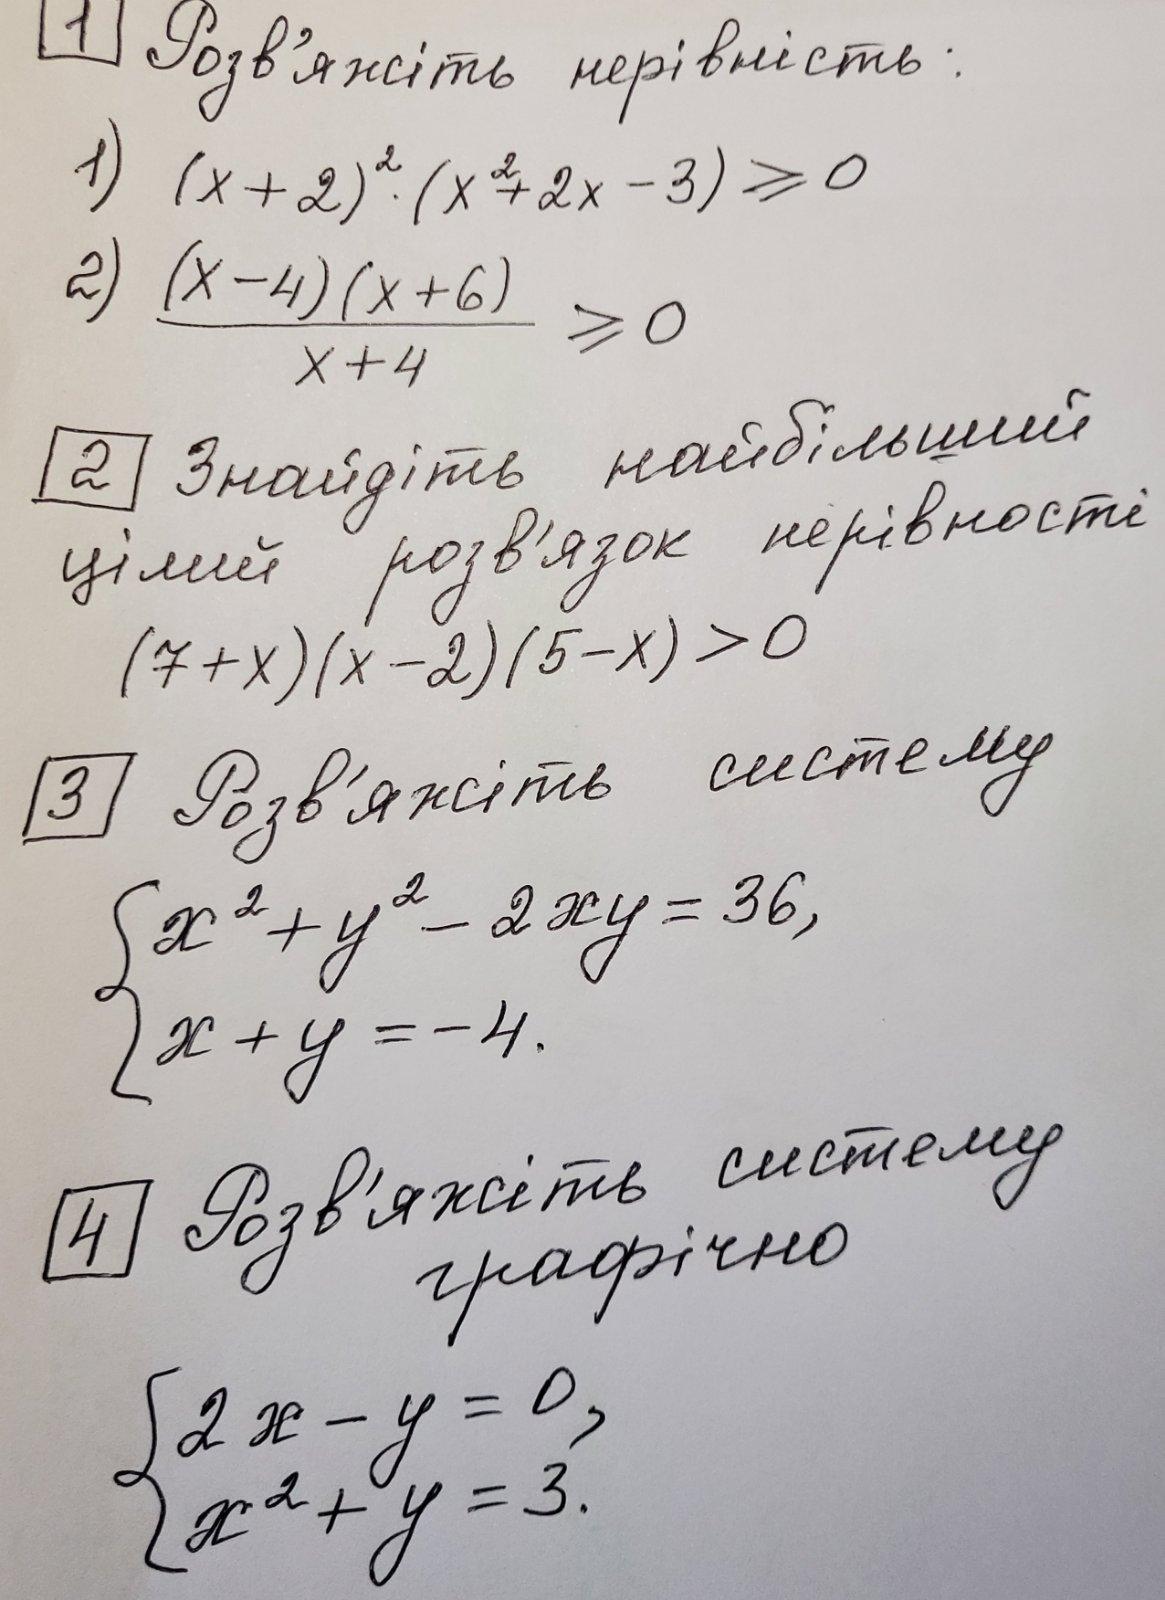 1 Розв'яжіть нерівність:
1) (x+2)²·(x²+2x-3)⩾0
2) (x-4)(x+6)
⩾0
x+4
2 Знайдіть найбільший
цілий розв'язок нерівності
(7+x)(x-2)(5-x)>0
3 Розв'яжіть систему
x²+y²-2xy=36,
x+y=-4.
4 Розв'яжіть систему
графічно
2x-y=0,
x²+y=3.